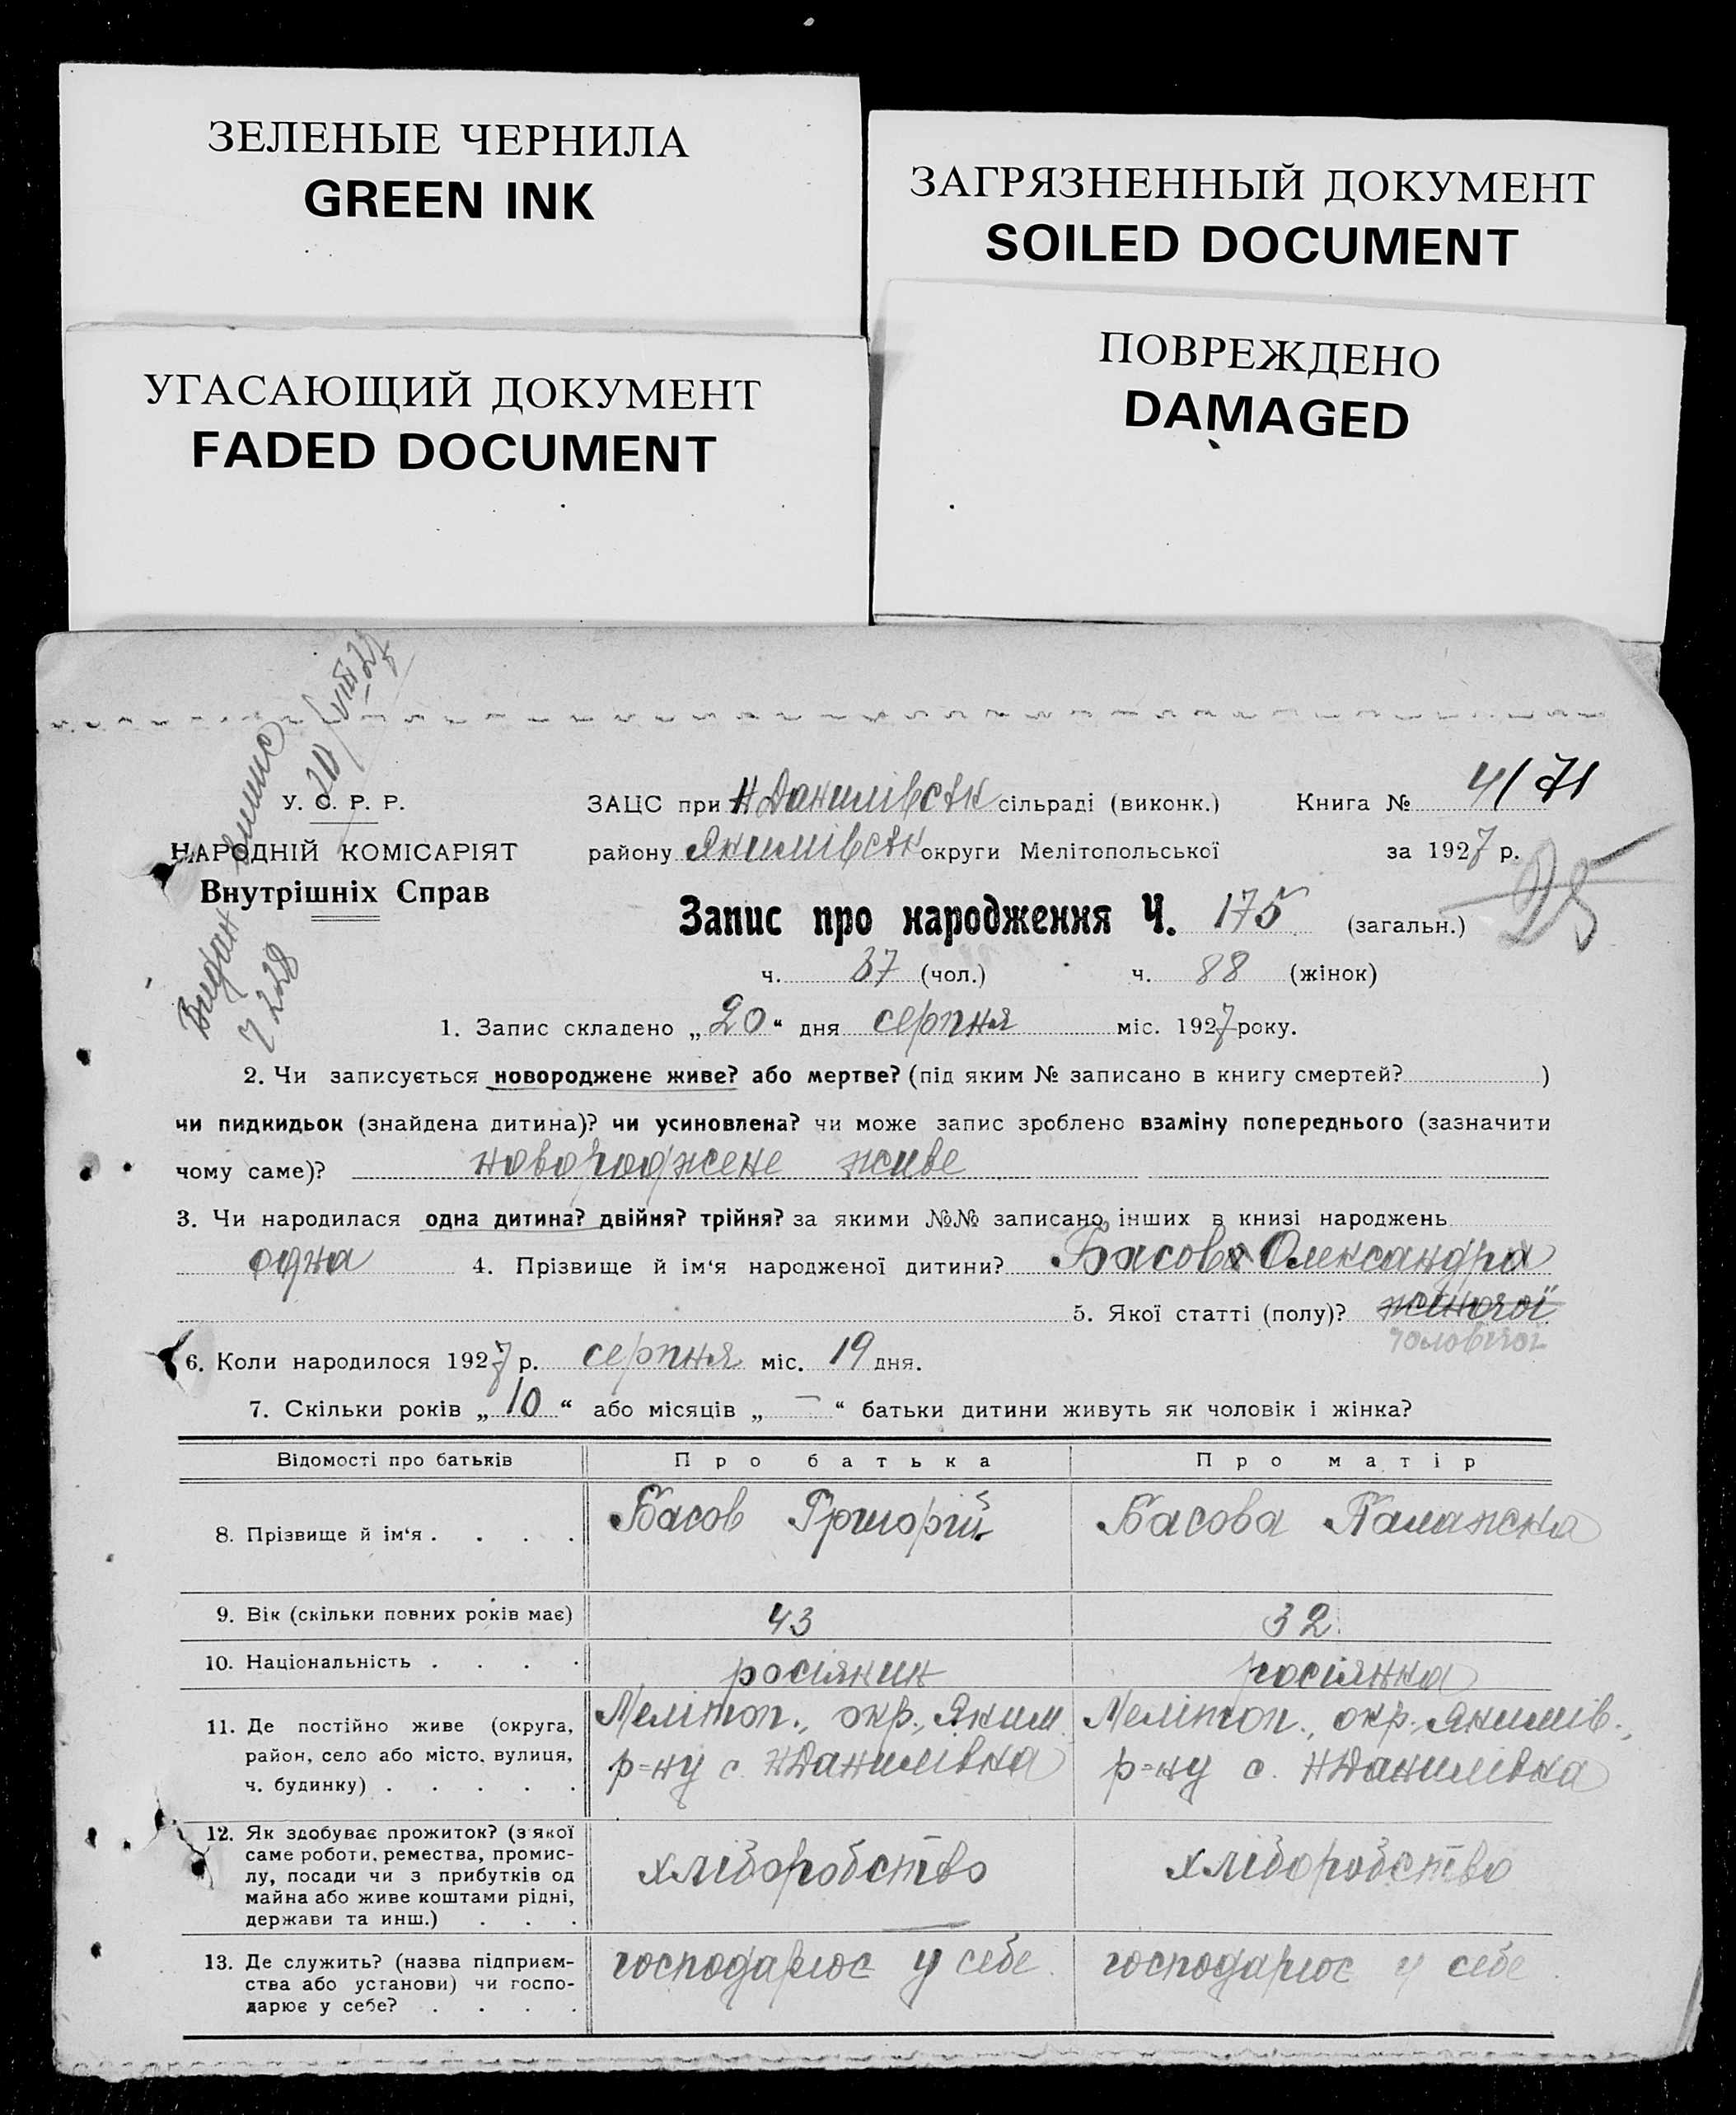 ЗЕЛЕНЫЕ ЧЕРНИЛА
GREEN INK
ЗАГРЯЗНЕННЫЙ ДОКУМЕНТ
SOILED DOCUMENT
УГАСАЮЩИЙ ДОКУМЕНТ
FADED DOCUMENT
ПОВРЕЖДЕНО
DAMAGED
Видан випис 20/VIII 27
Ч 228
У. С. Р. Р.
НАРОДНІЙ КОМІСАРІЯТ
Внутрішніх Справ
ЗАЦС при Н Данилівськ сільраді (виконк.)
району Якимівськ округи Мелітопольської
Книга № 4/71
за 1927 р.
25
Запис про народження Ч. 175 (загальн.)
ч. 87 (чол.) ч. 88 (жінок)
1. Запис складено „20“ дня серпня міс. 1927 року.
2. Чи записується новороджене живе? або мертве? (під яким № записано в книгу смертей? )
чи пидкидьок (знайдена дитина)? чи усиновлена? чи може запис зроблено взаміну попереднього (зазначити
чому саме)? новороджене живе
3. Чи народилася одна дитина? двійня? трійня? за якими №№ записано інших в книзі народжень
одна 4. Прізвище й ім‘я народженої дитини? Басов Олександра
5. Якої статті (полу)? жіночої
чоловічої
6. Коли народилося 1927 р. серпня міс. 19 дня.
7. Скільки років „10“ або місяців „—“ батьки дитини живуть як чоловік і жінка?
Відомості про батьків Про батька Про матір
8. Прізвище й ім‘я . . . . Басов Григорій Басова Палажка
9. Вік (скільки повних років має) 43 32
10. Національність . . . . росіянин росіянка
11. Де постійно живе (округа, район, село або місто, вулиця, ч. будинку) . . . . .
Меліточ., окр., Яким. р=ну с. НДанилівка
Мелітоп., окр., Якимів., р=ну с. НДанилівка
12. Як здобуває прожиток? (з якої
саме роботи, ремества, промис-
лу, посади чи з прибутків од
майна або живе коштами рідні,
держави та инш.) . . .
хліборобство хліборобство
13. Де служить? (назва підприєм-
ства або установи) чи госпо-
дарює у себе? . . . .
господарює у себе господарює у себе